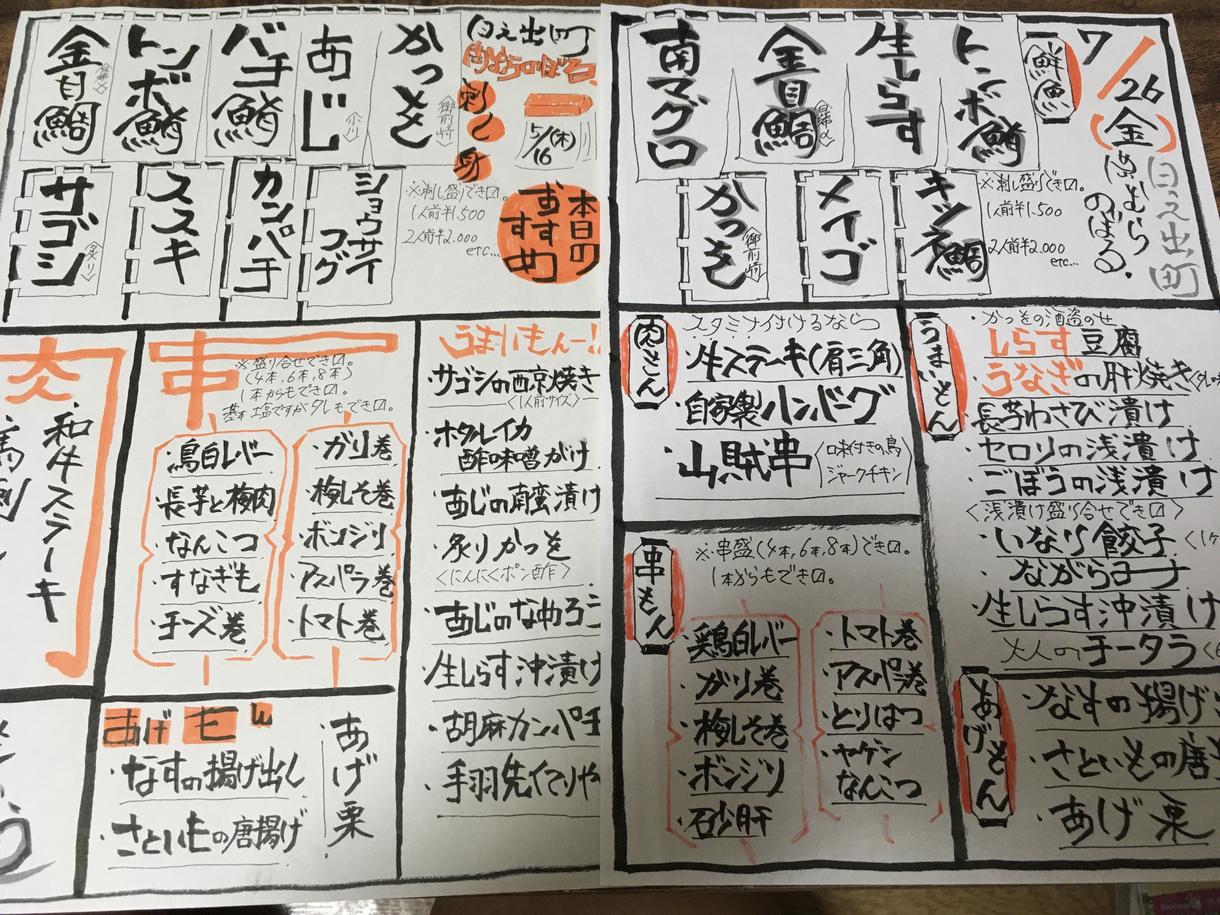 呉服町
肉ちょうのぼる
刺し身
5/16(木)
本日の
おすすめ
かつを
〈御前崎〉
あじ
〈小川〉
バチ鮪
トンボ鮪
金目鯛
ショウサイ
フグ
カンパチ
ススキ
サゴシ
〈炙り〉
※刺し盛りできます。
1人前¥1,500
2人前¥2,000
etc...
串
※盛り合せできます。
(4本,6本,8本)
1本からもできます。
基本塩ですがタレもできます。
・鳥白レバー
・長芋と梅肉
・なんこつ
・すなぎも
・チーズ巻
・ガリ巻
・梅しそ巻
・ボンジリ
・アスパラ巻
・トマト巻
・和牛ステーキ
うまいもんー!!
・サゴシの西京焼き
〈1人前サイズ〉
・ホタルイカ
酢味噌がけ
・あじの南蛮漬け
・炙りかつを
〈にんにくポン酢〉
・あじのなめろう
・生しらす沖漬け
・胡麻カンパチ
・手羽先てりや
あげもん
・なすの揚げ出し
・さといもの唐揚げ
・あげ栗
7/26
(金)
のぼる.
鮮魚
トンボ鮪
生しらす
金目鯛
南マグロ
キツネ鯛
メイゴ
かつを
〈御前崎〉
※刺し盛りできます。
1人前¥1,500
2人前¥2,000
etc...
肉もん
スタミナ付けるなら
・牛ステーキ(肩三角)
・自家製ハンバーグ
・山賊串
〈味付きの鳥
ジャークチキン〉
串もん
※串盛(4本,6本,8本)できます。
1本からもできます。
・鶏白レバー
・ガリ巻
・梅しそ巻
・ボンジリ
・砂肝
・トマト巻
・アスパラ巻
・とりはつ
・ヤゲン
なんこつ
うまいもん
・かつをの酒盗のせ
しらす豆腐
・うなぎの肝焼き
・長芋わさび漬け
・セロリの浅漬け
・ごぼうの浅漬け
〈浅漬け盛り合せできます〉
・いなり餃子
・ながらみ
・生しらす沖漬け
・大人のチータラ
あげもん
・なすの揚げ
・さといもの唐
・あげ栗